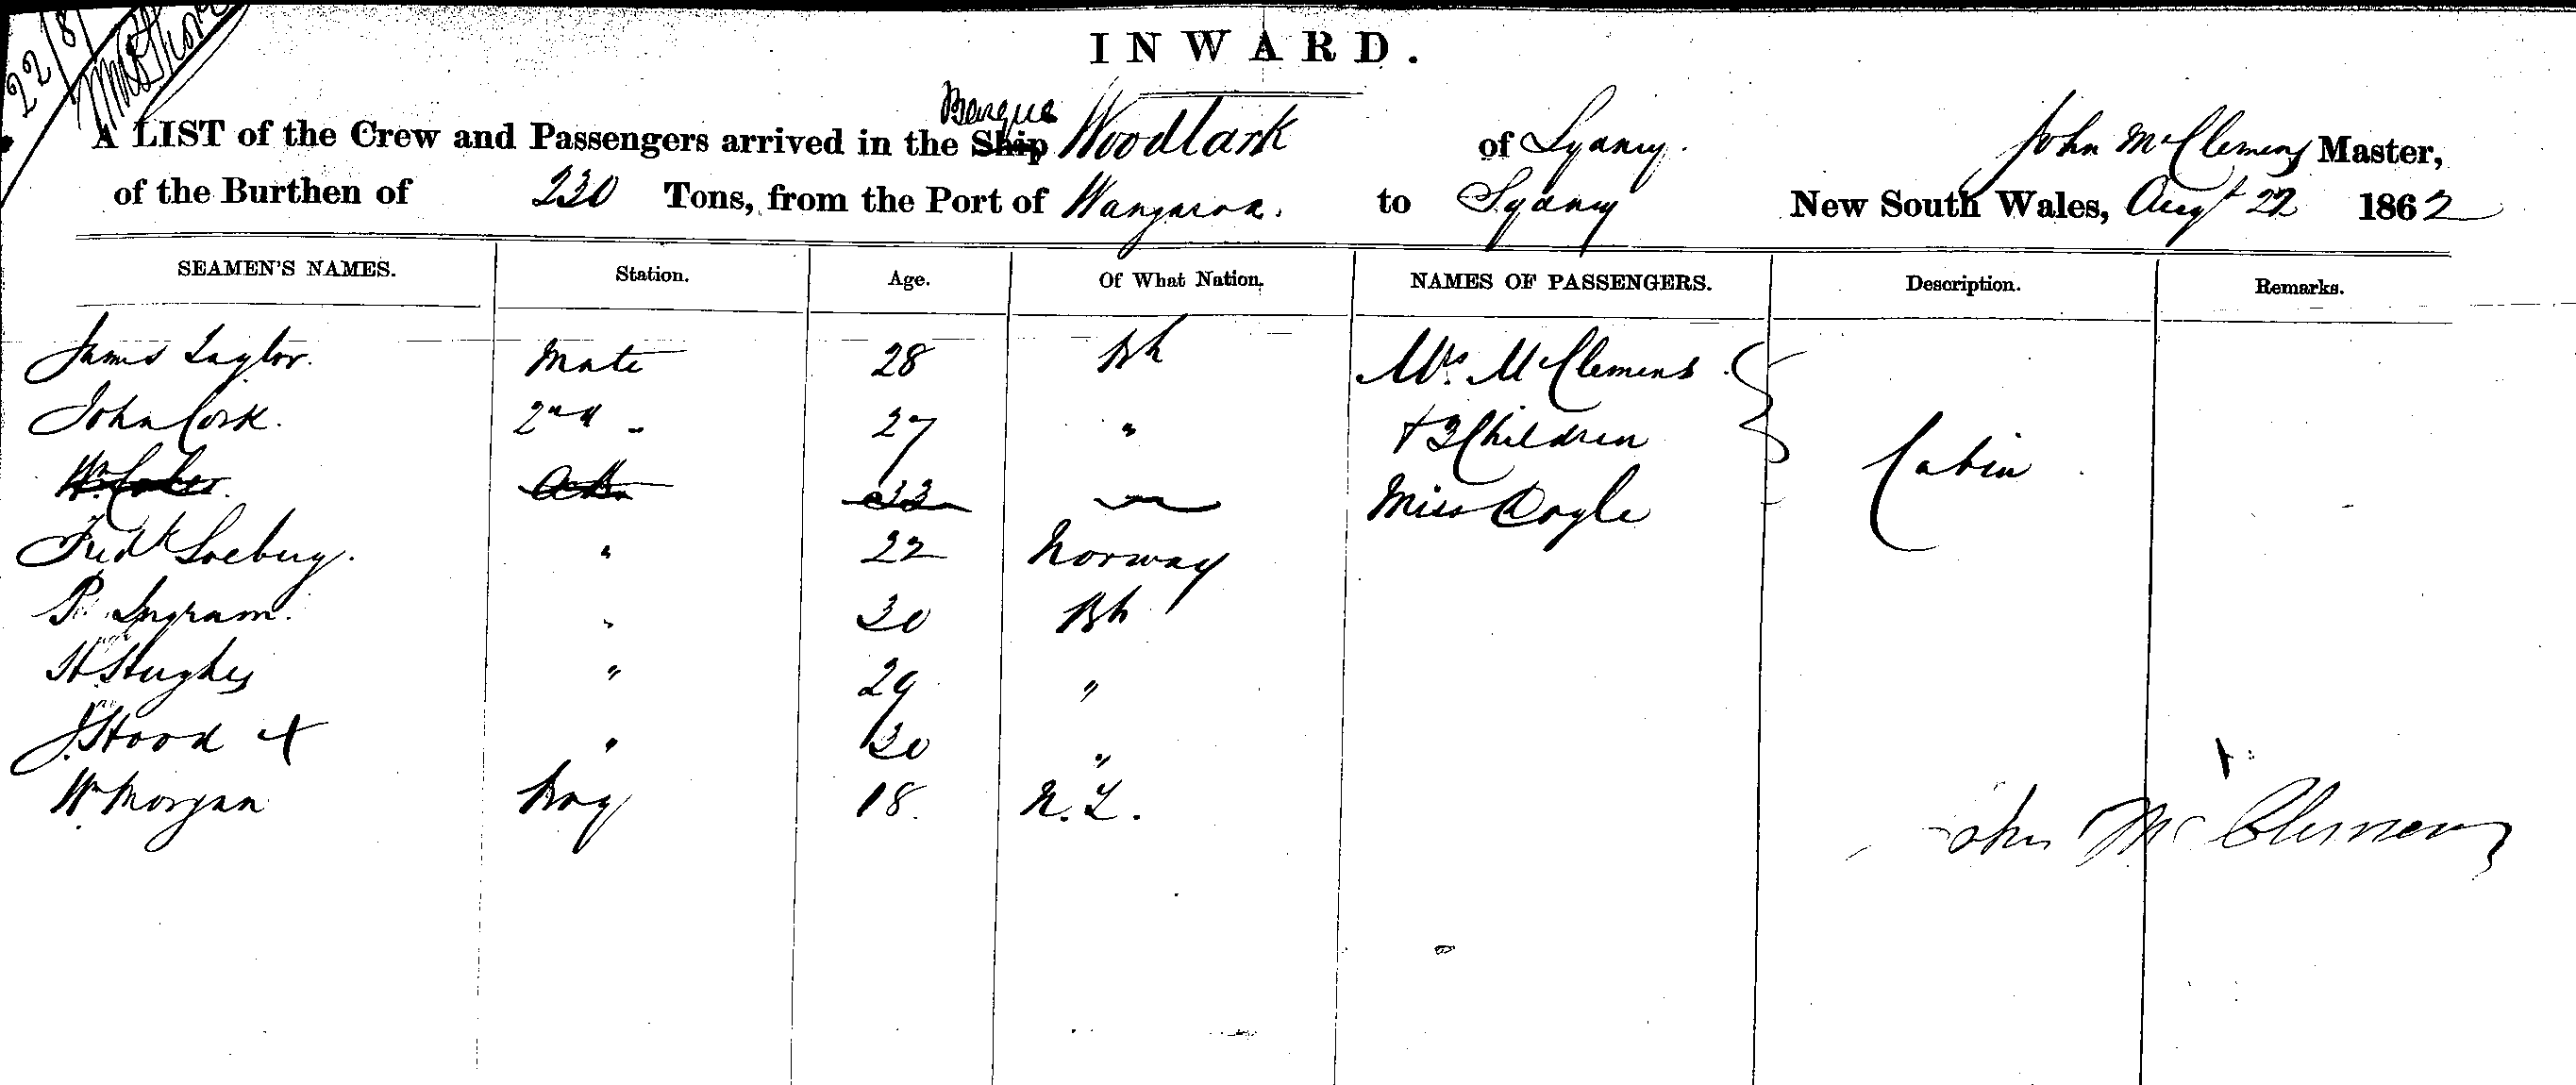 22/8/
INWARD.
Barque
A LIST of the Crew and Passengers arrived in the Ship Woodlark of Sydney. John McClemens Master,
of the Burthen of 230 Tons, from the Port of Wangaroa. to Sydney New South Wales, Augt 22 1862
SEAMEN'S NAMES. Station. Age. Of What Nation. NAMES OF PASSENGERS. Description. Remarks.
James Taylor. Mate 28 Bh Mrs. McClemens
John Cork. 2nd " 27 " + 3 Children Cabin
Wm. AB 33 Miss Doyle
Fredk " 22 Norway
P. Ingram. " 30 Bh
H. Hughes " 29 "
J. Hood + " 30 "
Wm Morgan Boy 18. N.Z.
John McClemens